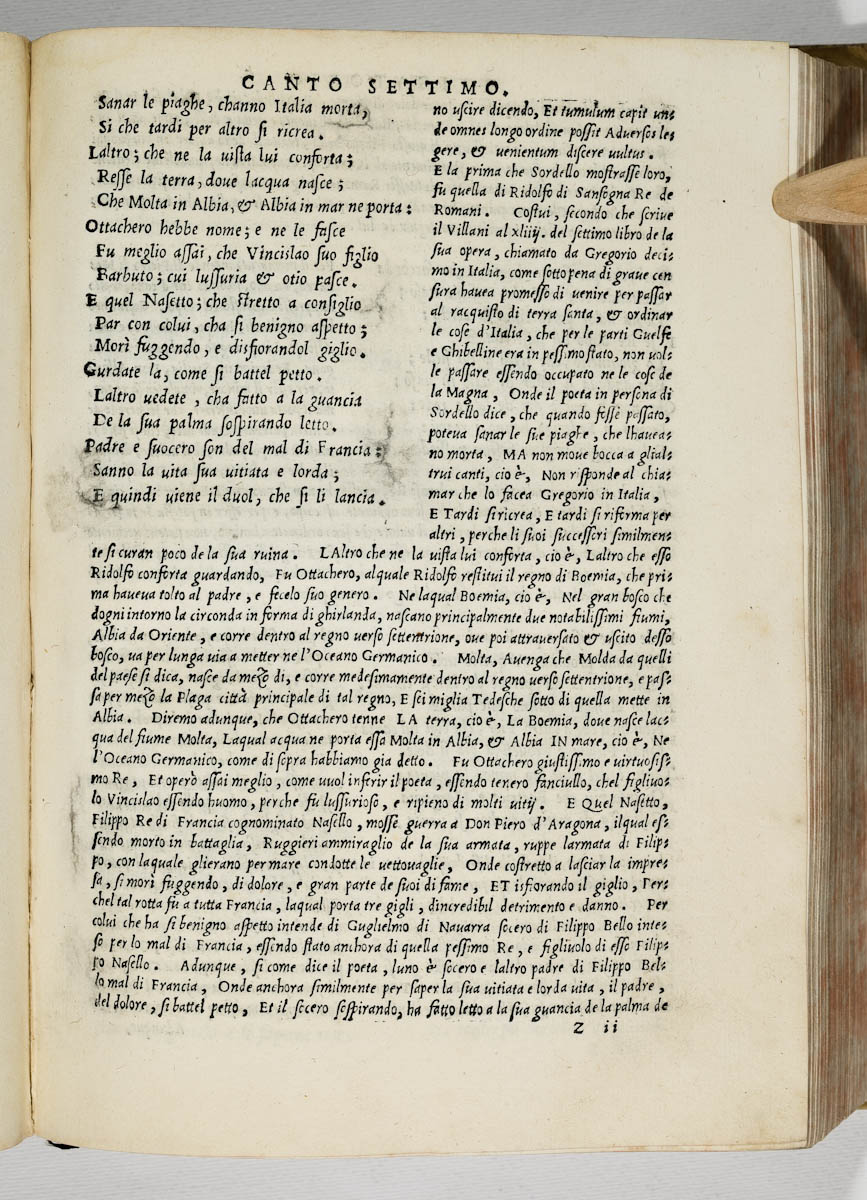 CANTO SETTIMO.
Sanar le piaghe, channo Italia morta,
Si che tardi per altro si ricrea.
Laltro; che ne la uista lui conforta;
Resse la terra, doue lacqua nasce;
Che Molta in Albia, & Albia in mar ne porta:
Ottachero hebbe nome; e ne le fasce
Fu meglio assai, che Vincislao suo figlio
Barbuto; cui lussuria & otio pasce.
E quel Nasetto; che stretto a consiglio
Par con colui, cha si benigno aspetto;
Morì fuggendo, e disfiorandol giglio.
Gurdate la, come si battel petto.
Laltro uedete, cha fatto a la guancia
De la sua palma sospirando letto.
Padre e suocero son del mal di Francia:
Sanno la uita sua uitiata e lorda;
E quindi uiene il duol, che si li lancia.
no uscire dicendo, Et tumulum capit un=
de omnes longo ordine possit Aduersos le=
gere, & uenientum discere uultus.
E la prima che Sordello mostrasse loro,
fu quella di Ridolfo di Sansogna Re de
Romani. Costui, secondo che scriue
il Villani al xliiij. del settimo libro de la
sua opera, chiamato da Gregorio deci=
mo in Italia, come sotto pena di graue cen
sura hauea promesso di uenire per passar
al racquisto di terra santa, & ordinar
le cose d'Italia, che per le parti Guelfe
e Ghibelline era in pessimo stato, non uol=
le passare essendo occupato ne le cose de
la Magna, Onde il poeta in persona di
Sordello dice, che quando fosse passato,
poteua sanar le sue piaghe, che lhauea=
no morta, MA non moue bocca a glial=
trui canti, cio è, Non risponde al chia=
mar che lo facea Gregorio in Italia,
E Tardi si ricrea, E tardi si riforma per
altri, perche li suoi successori similmen=
te si curan poco de la sua ruina. LAltro che ne la uista lui conforta, cio è, Laltro che esso
Ridolfo conforta guardando, Fu Ottachero, al quale Ridolfo restitui il regno di Boemia, che pri=
ma haueua tolto al padre, e fecelo suo genero. Ne laqual Boemia, cio è, Nel gran bosco che
dogni intorno la circonda in forma di ghirlanda, nascano principalmente due notabilissimi fiumi,
Albia da Oriente, e corre dentro al regno uerso settentrione, oue poi attrauersato & uscito desso
bosco, ua per lunga uia a metter ne l'Oceano Germanico. Molta, Auenga che Molda da quelli
del paese si dica, nasce da mezo di, e corre medesimamente dentro al regno uerso settentrione, e pas=
sa per mezo la Plaga città principale di tal regno, E sei miglia Tedesche sotto di quella mette in
Albia. Diremo adunque, che Ottachero tenne LA terra, cio è, La Boemia, doue nasce lac=
qua del fiume Molta, Laqual acqua ne porta essa Molta in Albia, & Albia IN mare, cio è, Ne
l'Oceano Germanico, come di sopra habbiamo gia detto. Fu Ottachero giustissimo e uirtuosis=
mo Re, Et operò assai meglio, come uuol inferir il poeta, essendo tenero fanciullo, chel figliuo=
lo Vincislao essendo huomo, perche fu lussurioso, e ripieno di molti uitij. E QUel Nasetto,
Filippo Re di Francia cognominato Nasello, mosse guerra a Don Piero d'Aragona, ilqual es=
sendo morto in battaglia, Ruggieri ammiraglio de la sua armata, ruppe larmata di Filip=
po, con laquale glierano per mare condotte le uettouaglie, Onde costretto a lasciar la impre=
sa, si morì fuggendo, di dolore, e gran parte de suoi di fame, ET isfiorando il giglio, Per=
chel tal rotta fu a tutta Francia, laqual porta tre gigli, dincredibil detrimento e danno. Per
colui che ha si benigno aspetto intende di Guglielmo di Nauarra socero di Filippo Bello inte=
so per lo mal di Francia, essendo stato anchora di quella pessimo Re, e figliuolo di esso Filip=
po Nasello. Adunque, si come dice il poeta, luno è socero e laltro padre di Filippo Bel=
lo mal di Francia, Onde anchora similmente per saper la sua uitiata e lorda uita, il padre,
del dolore, si battel petto, Et il socero sospirando, ha fatto letto a la sua guancia de la palma de
Z ii